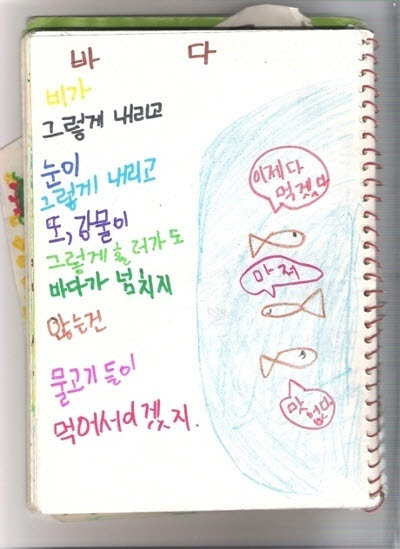 바 다
비가
그렇게 내리고
눈이
그렇게 내리고
또, 강물이
그렇게 흘러가도
바다가 넘치지
않는건
물고기들이
먹어서이겠지.
이제 다
마저